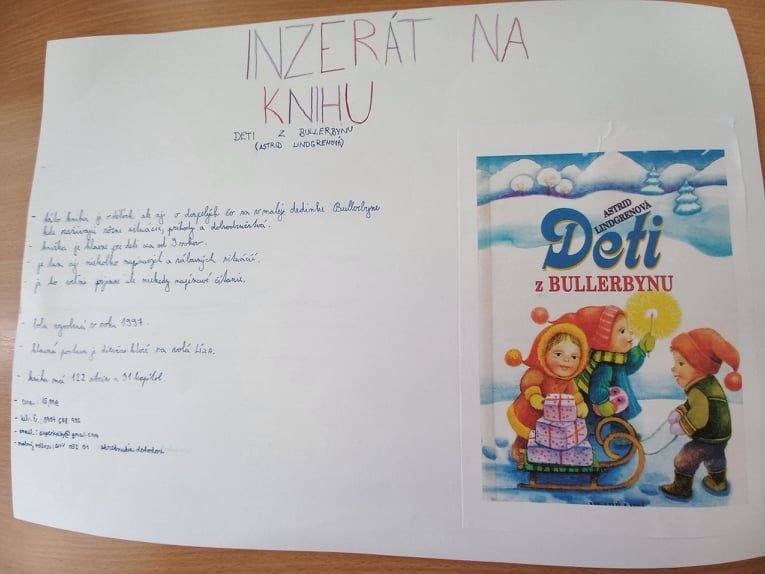 INZERÁT NA
KNIHU
DETI Z BULLERBYNU
(ASTRID LINDGRENOVÁ)
- táto kniha je o deťoch ale aj o dospelých čo sa v malej dedinke Bullerbyne
kde zažívajú rôzne situácie, príhody a dobrodružstvá.
- knižka je hlavne pre deti od 9 rokov.
- je tam aj niekoľko napínavých a zábavných situácií.
- je to veľmi pojmavé ale niekedy napínavé čítanie.
- bola vydaná v roku 1997.
- hlavná postava je dievča ktoré sa volá Líza.
- kniha má 122 strán a 31 kapitol.
- cena: 15,99€
- tel. č.: 0904 678 935
- email: @gmail.com
ASTRID
LINDGRENOVÁ
Deti
z BULLERBYNU